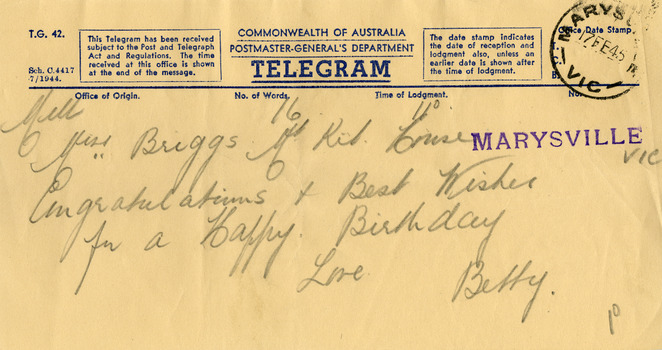 T.G. 42.
This Telegram has been received
subject to the Post and Telegraph
Act and Regulations. The time
received at this office is shown
at the end of the message.
Sch. C.4417
7/1944.
COMMONWEALTH OF AUSTRALIA
POSTMASTER-GENERAL'S DEPARTMENT
TELEGRAM
The date stamp indicates
the date of reception and
lodgment also, unless an
earlier date is shown after
the time of lodgment.
Office Date Stamp.
MARYSV
17 FE 45
VIC
Office of Origin. No. of Words. Time of Lodgment. No.
Melb 16
Miss Briggs Mt Kit. House
MARYSVILLE
VIC
Congratulations & Best Wishes
for a Happy. Birthday
Love Betty.